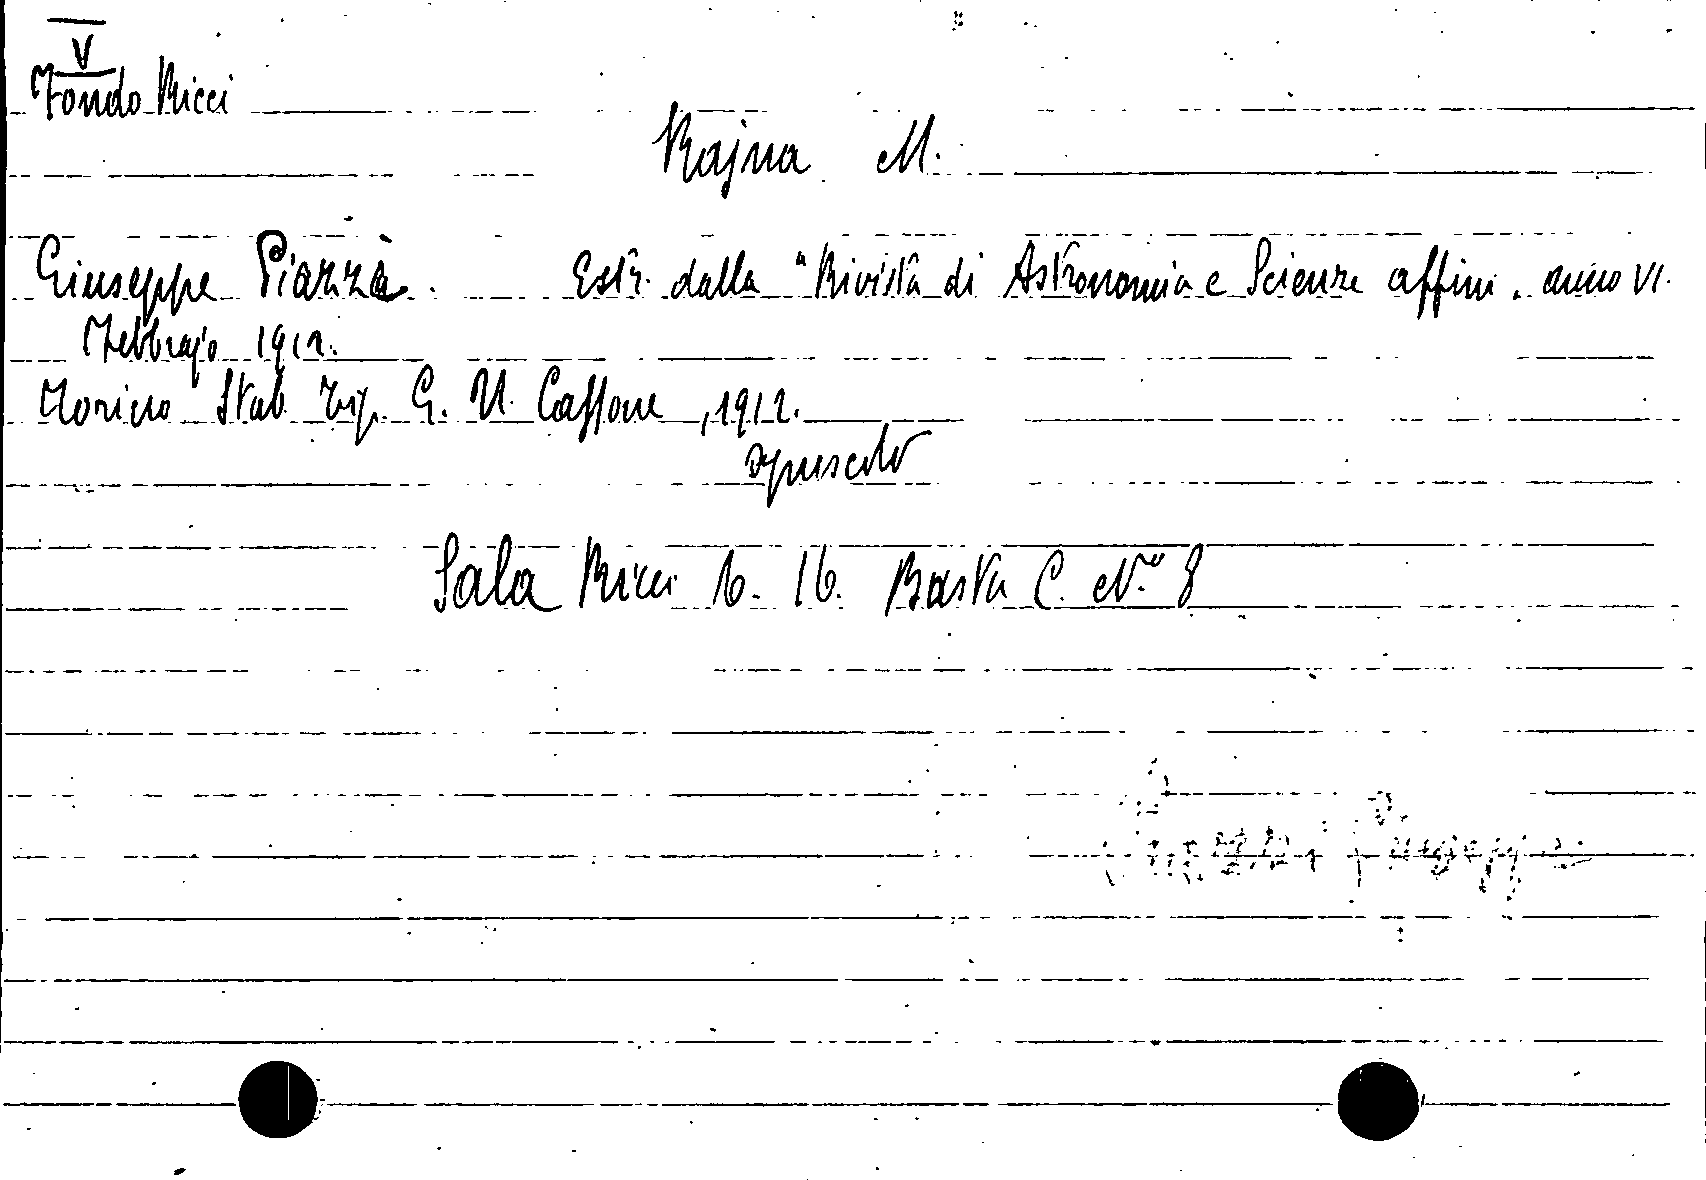 V
Fondo Ricci
Rajna M.
Giuseppe Piazzà. Estr. dalla "Rivista di Astronomia e Scienze affini. anno VI.
Febbrajo 1912.
Torino Stab. Tip. G. U. Cassone, 1912.
opuscolo
Sala Ricci 16. 16. Busta C. N.° 8
Piazzi Giuseppe